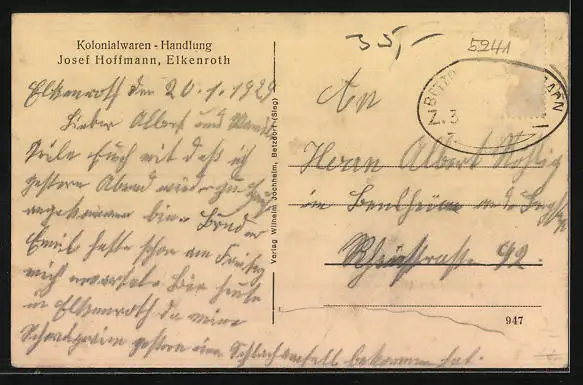 Kolonialwaren - Handlung
Josef Hoffmann, Elkenroth
Elkenroth den 20.1.1929
Lieber Albert und
Teile Euch mit daß ich
gestern Abend wieder gut
angekommen bin. Bruder
Emil hatte schon am Freitag
mich erwartet. Bin heute
in Elkenroth da meine
gestern einen Schlachtanfall bekommen hat.
Verlag Wilhelm Jochheim, Betzdorf (Sieg)
35,-
5241
Z. 3
An
Herrn Albert
in Bensheim a. d. Bergstr.
Rheinstrasse 42.
947